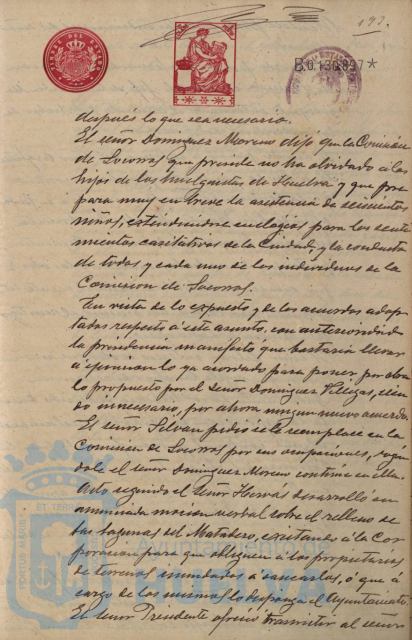 197.
TIMBRE DEL ESTADO
B.0.130.897*
después lo que sea necesario.
El señor Dominguez Moreno dijo que la Comisión
de Socorros que preside no ha olvidado á los
hijos de los huelguistas de Huelva y que pre-
para muy en breve la asistencia de seiscientos
niños, extendiendose en elogios para los senti-
mientos caritativos de la Ciudad, y la conducta
de todos y cada uno de los individuos de la
Comisión de Socorros.
En vista de lo expuesto y de los acuerdos adop-
tados respecto á este asunto, con anterioridad
la presidencia manifestó que bastaria llevar
á ejecución lo ya acordado para poner por obra
lo propuesto por el Señor Dominguez Villegas, sien-
do innecesario, por ahora ningun nuevo acuerdo.
El señor Silvan pidió se le reemplace en la
Comisión de Socorros por sus ocupaciones, rogan-
dole el señor Dominguez Moreno continúe en ella.
Acto seguido el señor Hervás desarrolló su
anunciada moción verbal sobre el relleno de
las lagunas del Matadero, excitando á la Cor-
poración para que obliguen á los propietarios
de terrenos inundados á sanearlos, ó que á
cargo de los mismos lo disponga el Ayuntamiento.
El señor Presidente ofreció transmitir al señor
PORTUS MARIS ET TERRAE
Ayuntamiento
HUELVA